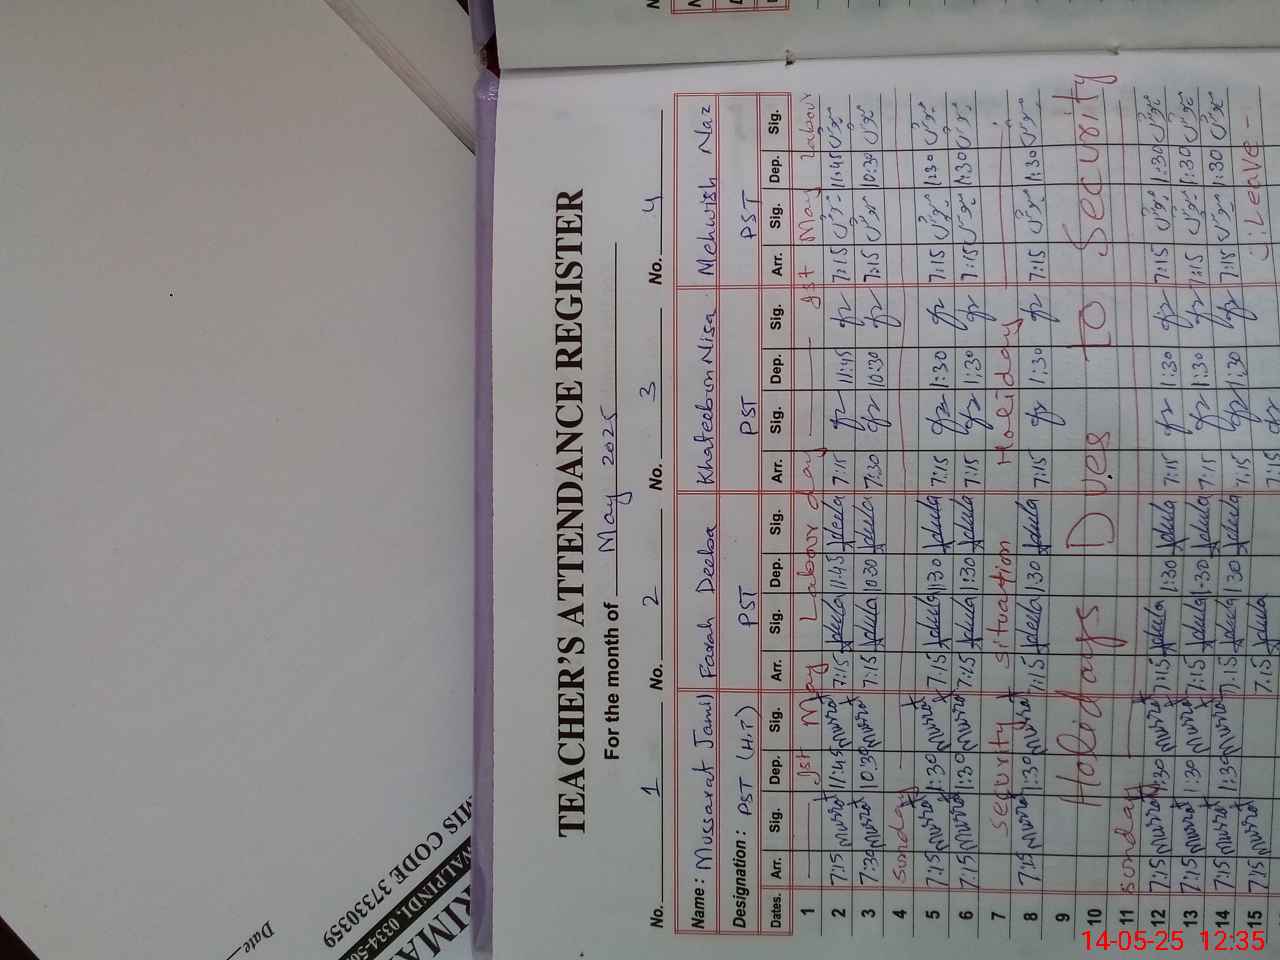 TEACHER'S ATTENDANCE REGISTER
For the month of May 2025
No. 1 No. 2 No. 3 No. 4
Name: Mussarat Jamil Farah Deeba Khateebun Nisa Mehwish Naz
Designation: PST (H.T) PST PST PST
Dates. Arr. Sig. Dep. Sig. Arr. Sig. Dep. Sig. Arr. Sig. Dep. Sig. Arr. Sig. Dep. Sig.
1 1st May Labour day 1st May Labour
2 7:15 11:45 7:15 11:45 7:15 11:45 7:15 11:45
3 7:30 10:30 7:15 10:30 7:30 10:30 7:15 10:30
4 Sunday
5 7:15 1:30 7:15 1:30 7:15 1:30 7:15 1:30
6 7:15 1:30 7:15 1:30 7:15 1:30 7:15 1:30
7 Security Situation Holiday
8 7:15 1:30 7:15 1:30 7:15 1:30 7:15 1:30
9
10 Holidays Dues to Security
11 Sunday
12 7:15 1:30 7:15 1:30 7:15 1:30 7:15 1:30
13 7:15 1:30 7:15 1:30 7:15 1:30 7:15 1:30
14 7:15 1:30 7:15 1:30 7:15 1:30 7:15 1:30
15 7:15 7:15 7:15 C.Leave
MIS CODE 37330359
Date
14-05-25 12:35